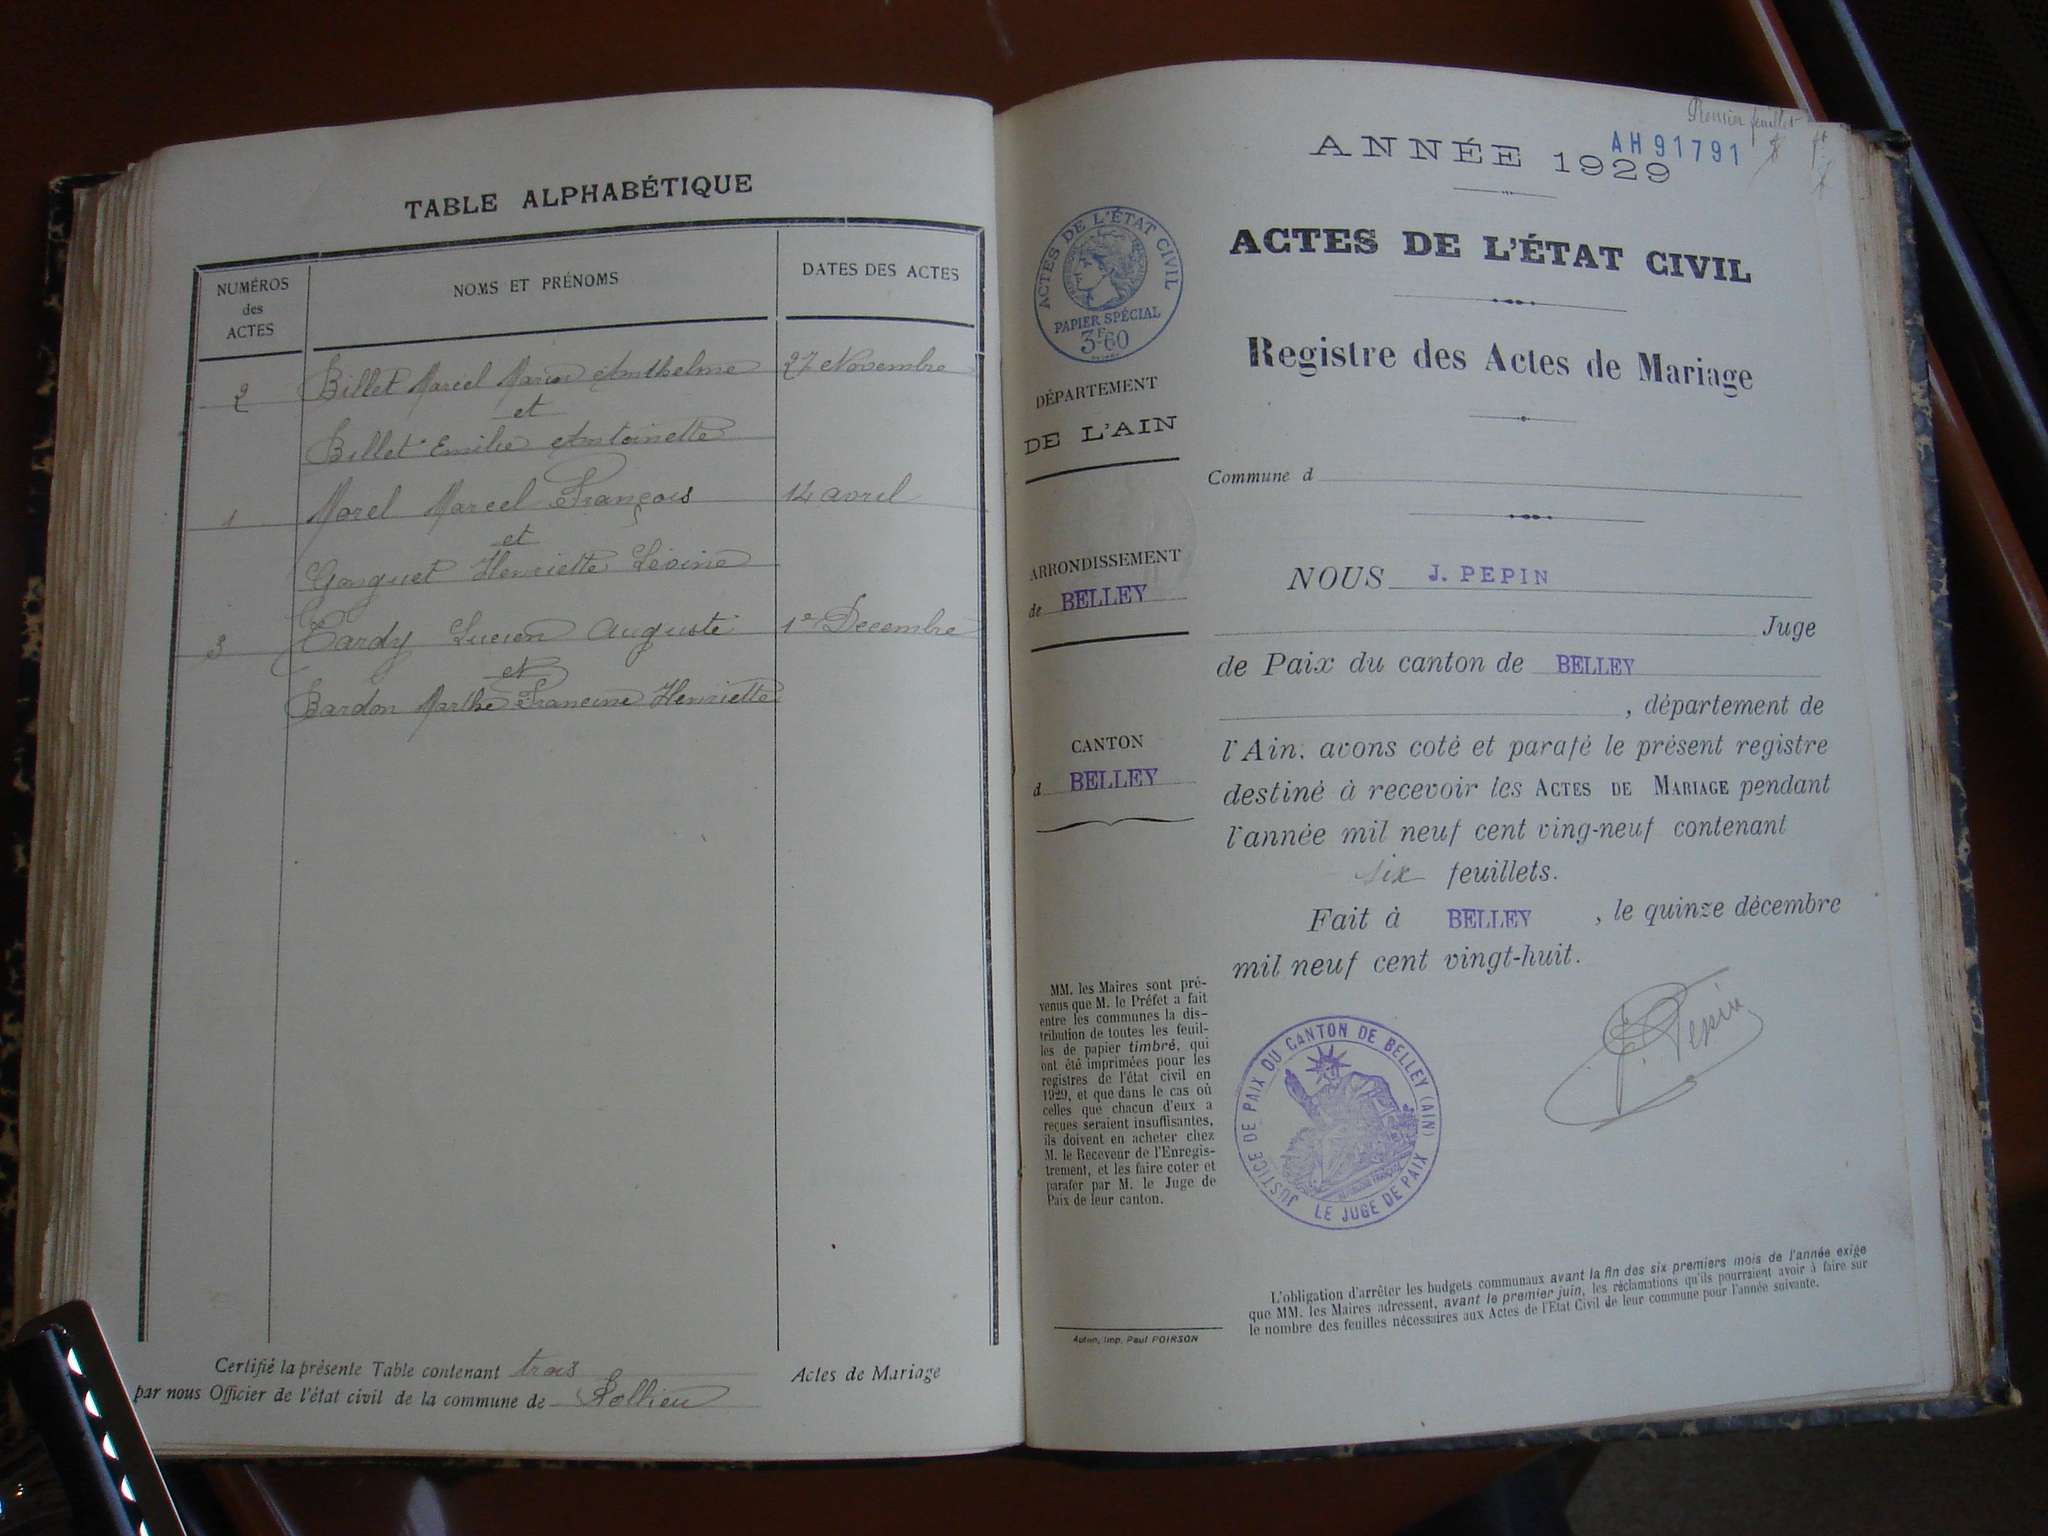 TABLE ALPHABÉTIQUE
NUMÉROS
des
ACTES
NOMS ET PRÉNOMS
DATES DES ACTES
2 Billet Marcel Marius Anthelme 27 Novembre
et
Billet Emilie Antoinette
1 Morel Marcel François 14 avril
et
Goyguet Henriette Léonie
3 Tardy Lucien Auguste 1er Decembre
et
Bardon Marthe Francine Henriette
Certifié la présente Table contenant trois Actes de Mariage
par nous Officier de l'état civil de la commune de Pollieu
Premier feuillet
AH91791
ANNÉE 1929
ACTES DE L'ÉTAT CIVIL
Registre des Actes de Mariage
ACTES DE L'ÉTAT CIVIL
PAPIER SPÉCIAL
3F60
DÉPARTEMENT
DE L'AIN
ARRONDISSEMENT
de BELLEY
CANTON
d BELLEY
Commune d
NOUS J. PEPIN
Juge
de Paix du canton de BELLEY
, département de
l'Ain, avons coté et parafé le présent registre
destiné à recevoir les ACTES DE MARIAGE pendant
l'année mil neuf cent ving-neuf contenant
six feuillets.
Fait à BELLEY , le quinze décembre
mil neuf cent vingt-huit.
J. Pepin
JUSTICE DE PAIX DU CANTON DE BELLEY (AIN)
RÉPUBLIQUE FRANÇAISE
LE JUGE DE PAIX
MM. les Maires sont pré-
venus que M. le Préfet a fait
entre les communes la dis-
tribution de toutes les feuil-
les de papier timbré, qui
ont été imprimées pour les
registres de l'état civil en
1929, et que dans le cas où
celles que chacun d'eux a
reçues seraient insuffisantes,
ils doivent en acheter chez
M. le Receveur de l'Enregis-
trement, et les faire coter et
parafer par M. le Juge de
Paix de leur canton.
Autun, Imp. Paul POIRSON
L'obligation d'arrêter les budgets communaux avant la fin des six premiers mois de l'année exige
que MM. les Maires adressent, avant le premier juin, les réclamations qu'ils pourraient avoir à faire sur
le nombre des feuilles nécessaires aux Actes de l'Etat Civil de leur commune pour l'année suivante.